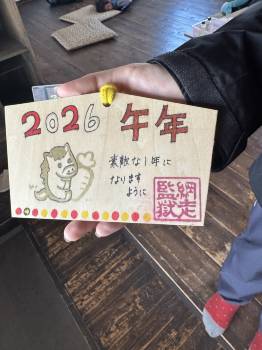 2026 午年
素敵な1年に
なります
ように
網走
監獄